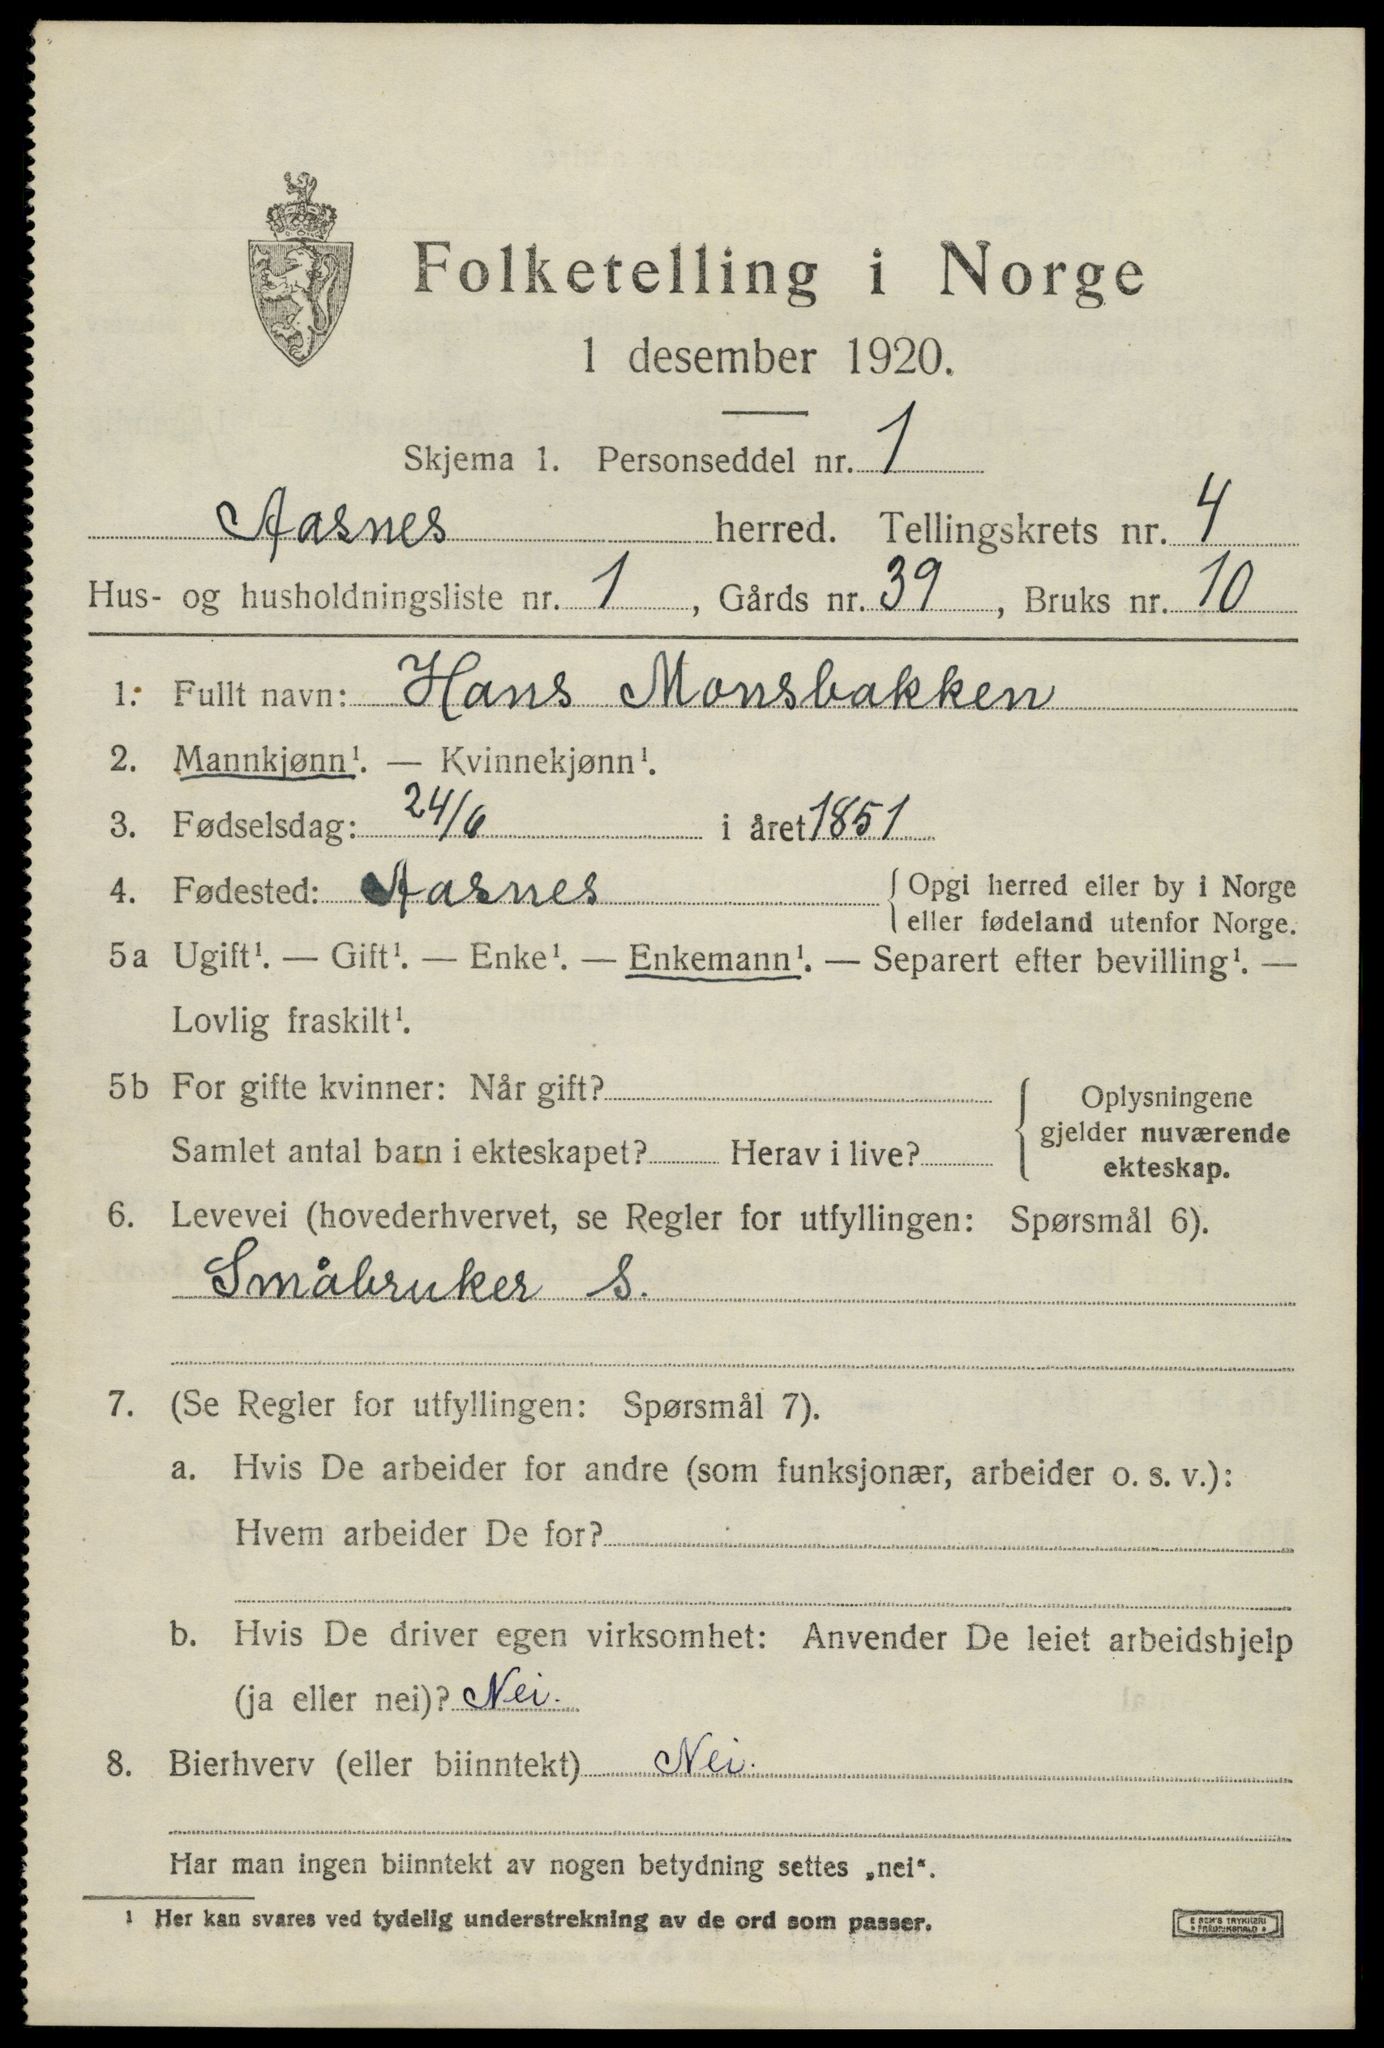 Folketelling i Norge
1 desember 1920.
Skjema 1. Personseddel nr. 1
Aasnes herred. Tellingskrets nr. 4
Hus- og husholdningsliste nr. 1, Gårds nr. 39, Bruks nr. 10
1. Fullt navn: Hans Monsbakken
2. Mannkjønn¹. — Kvinnekjønn¹.
3. Fødselsdag: 24/6 i året 1851
4. Fødested: Aasnes {Opgi herred eller by i Norge
eller fødeland utenfor Norge.
5a Ugift¹. — Gift¹. — Enke¹. — Enkemann¹. — Separert efter bevilling¹. —
Lovlig fraskilt¹.
5b For gifte kvinner: Når gift? { Oplysningene
gjelder nuværende
Samlet antal barn i ekteskapet? Herav i live? ekteskap.
6. Levevei (hovederhvervet, se Regler for utfyllingen: Spørsmål 6).
Småbruker S.
7. (Se Regler for utfyllingen: Spørsmål 7).
a. Hvis De arbeider for andre (som funksjonær, arbeider o. s. v.):
Hvem arbeider De for?
b. Hvis De driver egen virksomhet: Anvender De leiet arbeidshjelp
(ja eller nei)? Nei.
8. Bierhverv (eller biinntekt) Nei.
Har man ingen biinntekt av nogen betydning settes „nei“.
1 Her kan svares ved tydelig understrekning av de ord som passer.